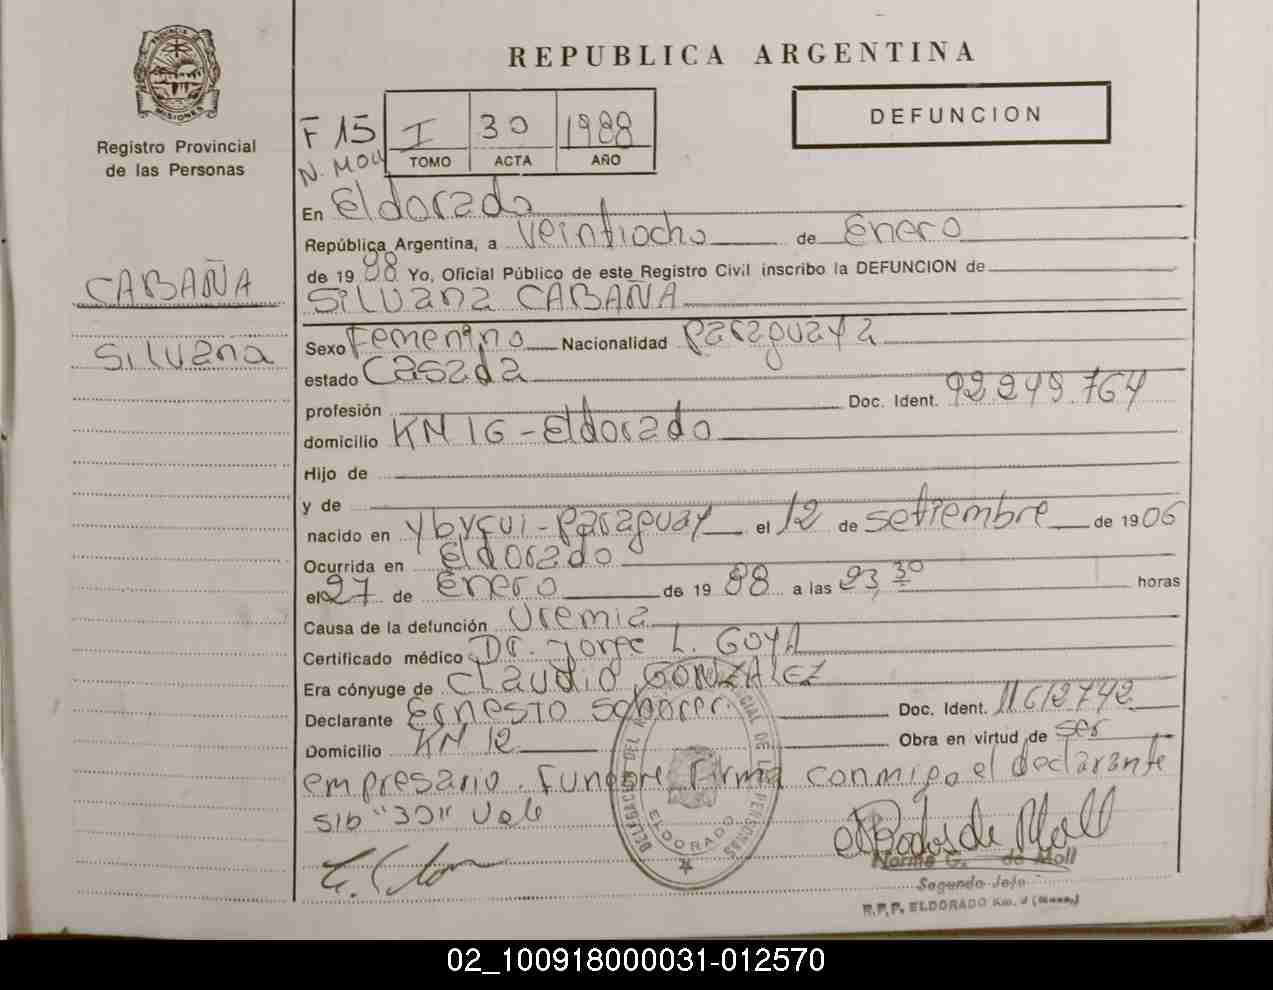 PROVINCIA DE
MISIONES
Registro Provincial
de las Personas
CABAÑA
Silvana
REPUBLICA ARGENTINA
F 15
N. MOLL
I 30 1988
TOMO ACTA AÑO
DEFUNCION
En Eldorado
República Argentina, a Veintiocho de Enero
de 1988 Yo, Oficial Público de este Registro Civil inscribo la DEFUNCION de
SiLVana CABAÑA
Sexo Femenino Nacionalidad Paraguaya
estado Casada
profesión Doc. Ident. 92249.764
domicilio KM 16 - Eldorado
Hijo de
y de
nacido en Ybycui - Paraguay el 12 de setiembre de 1906
Ocurrida en Eldorado
el 27 de Enero de 1988 a las 23,30 horas
Causa de la defunción Uremia
Certificado médico Dr. Jorge L. GOYA
Era cónyuge de CLaudio GONZALEZ
Declarante Ernesto Doc. Ident. 11612742
Domicilio KM 12 Obra en virtud de ser
empresario. Funebre Firma conmigo el declarante
S/b "30" Vale
DELEGACION DEL REGISTRO PROVINCIAL DE LAS PERSONAS
ELDORADO
Norma G. de Moll
Segundo Jefe
R.P.P. ELDORADO Km. 9 (Mnes.)
02_100918000031-012570